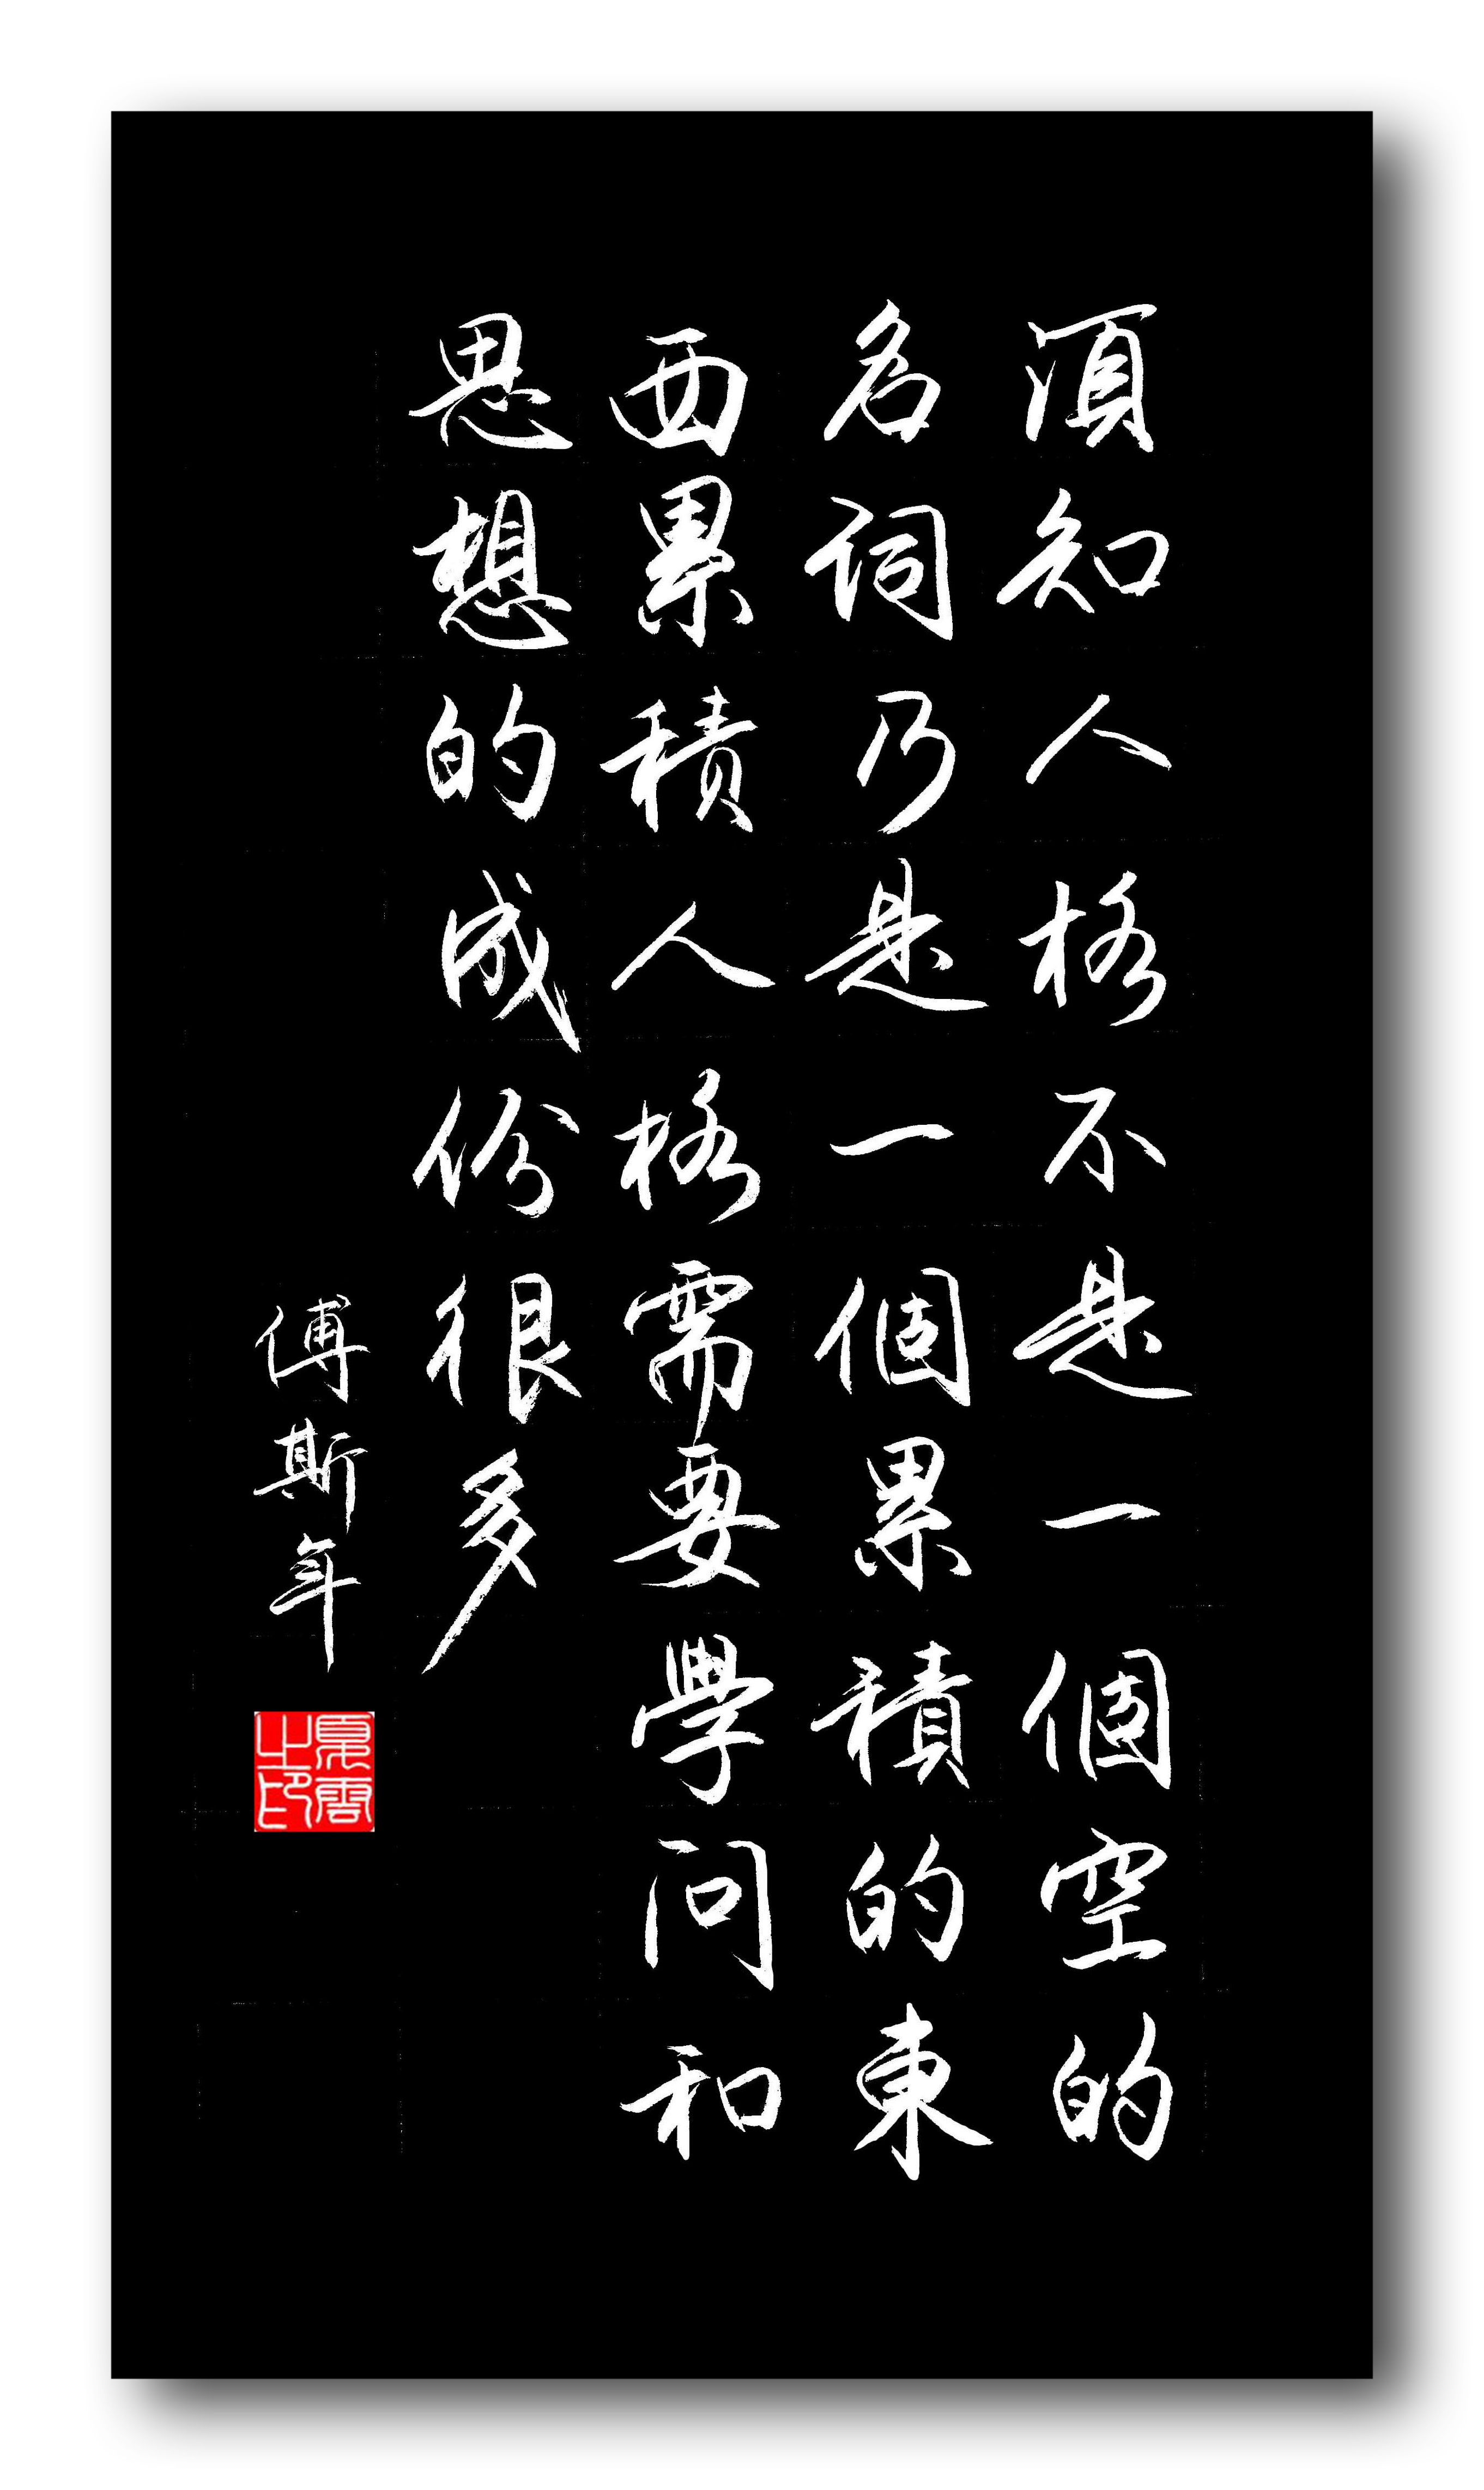 須知人格不是一個空的
名词乃是一個累積的東
西累積人格需要學问和
思想的成份很多
傅斯年
夏雲之印